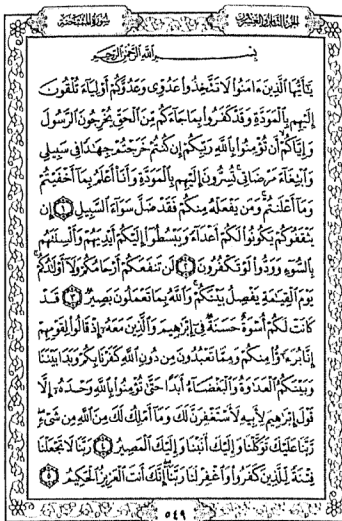 الجزء الثامن والعشرون
سورة الممتحنة
بِسْمِ اللَّهِ الرَّحْمَٰنِ الرَّحِيمِ
يَٰٓأَيُّهَا ٱلَّذِينَ ءَامَنُوا۟ لَا تَتَّخِذُوا۟ عَدُوِّى وَعَدُوَّكُمْ أَوْلِيَآءَ تُلْقُونَ
إِلَيْهِم بِٱلْمَوَدَّةِ وَقَدْ كَفَرُوا۟ بِمَا جَآءَكُم مِّنَ ٱلْحَقِّ يُخْرِجُونَ ٱلرَّسُولَ
وَإِيَّاكُمْ أَن تُؤْمِنُوا۟ بِٱللَّهِ رَبِّكُمْ إِن كُنتُمْ خَرَجْتُمْ جِهَٰدًا فِى سَبِيلِى
وَٱبْتِغَآءَ مَرْضَاتِى تُسِرُّونَ إِلَيْهِم بِٱلْمَوَدَّةِ وَأَنَا۠ أَعْلَمُ بِمَآ أَخْفَيْتُمْ
وَمَآ أَعْلَنتُمْ وَمَن يَفْعَلْهُ مِنكُمْ فَقَدْ ضَلَّ سَوَآءَ ٱلسَّبِيلِ ١ إِن
يَثْقَفُوكُمْ يَكُونُوا۟ لَكُمْ أَعْدَآءً وَيَبْسُطُوٓا۟ إِلَيْكُمْ أَيْدِيَهُمْ وَأَلْسِنَتَهُم
بِٱلسُّوٓءِ وَوَدُّوا۟ لَوْ تَكْفُرُونَ ٢ لَن تَنفَعَكُمْ أَرْحَامُكُمْ وَلَآ أَوْلَٰدُكُمْ
يَوْمَ ٱلْقِيَٰمَةِ يَفْصِلُ بَيْنَكُمْ وَٱللَّهُ بِمَا تَعْمَلُونَ بَصِيرٌ ٣ قَدْ
كَانَتْ لَكُمْ أُسْوَةٌ حَسَنَةٌ فِىٓ إِبْرَٰهِيمَ وَٱلَّذِينَ مَعَهُۥٓ إِذْ قَالُوا۟ لِقَوْمِهِمْ
إِنَّا بُرَءَٰٓؤُا۟ مِنكُمْ وَمِمَّا تَعْبُدُونَ مِن دُونِ ٱللَّهِ كَفَرْنَا بِكُمْ وَبَدَا بَيْنَنَا
وَبَيْنَكُمُ ٱلْعَدَٰوَةُ وَٱلْبَغْضَآءُ أَبَدًا حَتَّىٰ تُؤْمِنُوا۟ بِٱللَّهِ وَحْدَهُۥٓ إِلَّا
قَوْلَ إِبْرَٰهِيمَ لِأَبِيهِ لَأَسْتَغْفِرَنَّ لَكَ وَمَآ أَمْلِكُ لَكَ مِنَ ٱللَّهِ مِن شَىْءٍ
رَّبَّنَا عَلَيْكَ تَوَكَّلْنَا وَإِلَيْكَ أَنَبْنَا وَإِلَيْكَ ٱلْمَصِيرُ ٤ رَبَّنَا لَا تَجْعَلْنَا
فِتْنَةً لِّلَّذِينَ كَفَرُوا۟ وَٱغْفِرْ لَنَا رَبَّنَآ إِنَّكَ أَنتَ ٱلْعَزِيزُ ٱلْحَكِيمُ ٥
٥٤٩